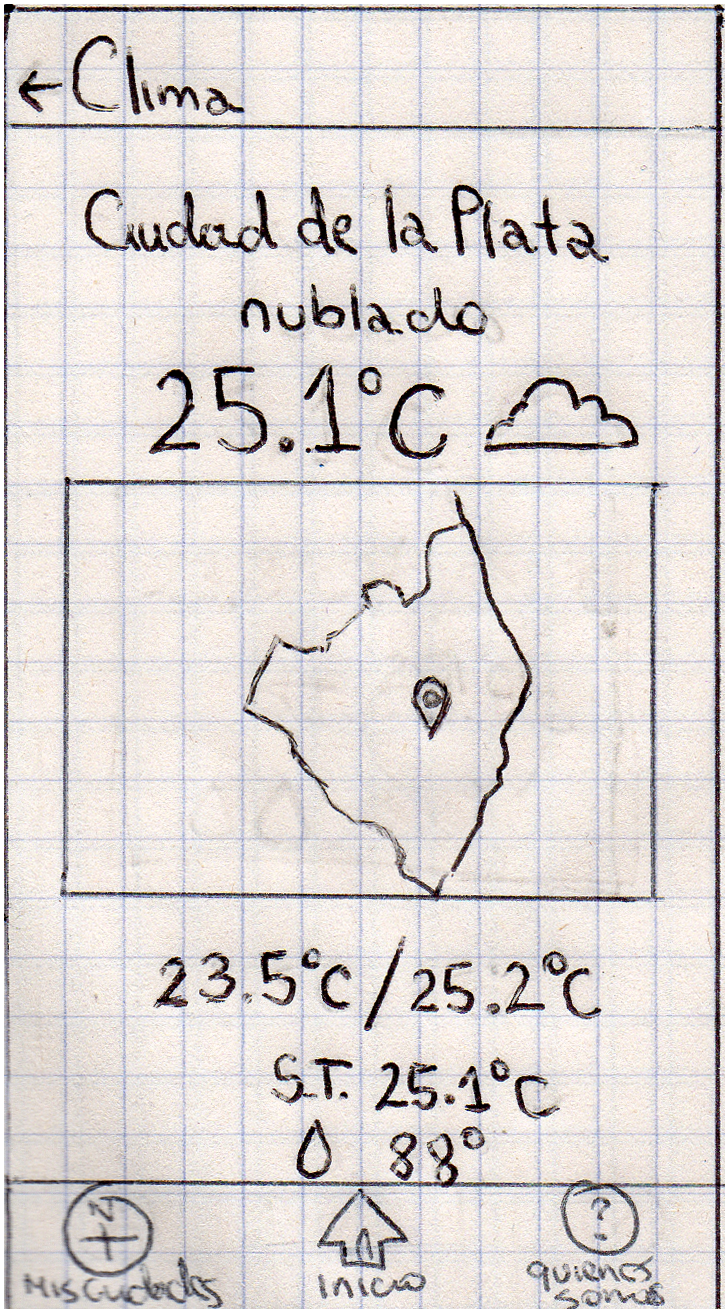 ← Clima
Ciudad de la Plata
nublado
25.1°C
23.5°C/25.2°C
S.T. 25.1°C
88°
N
?
Mis Ciudades
inicio
quienes
somos